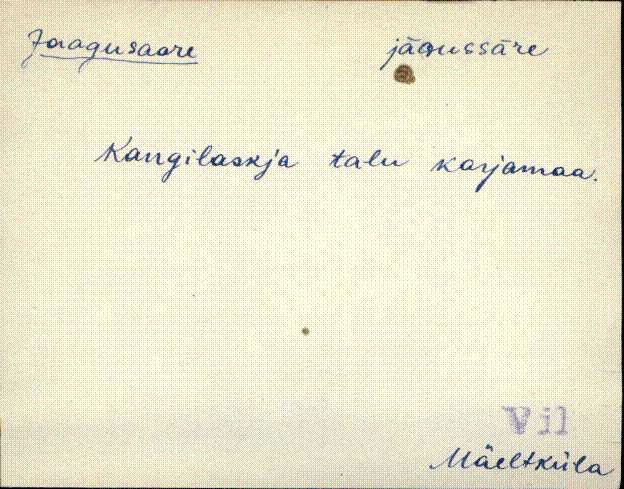 Jaagusaare jägussäre
Kangilaskja talu karjamaa.
Vil
Mäeltküla